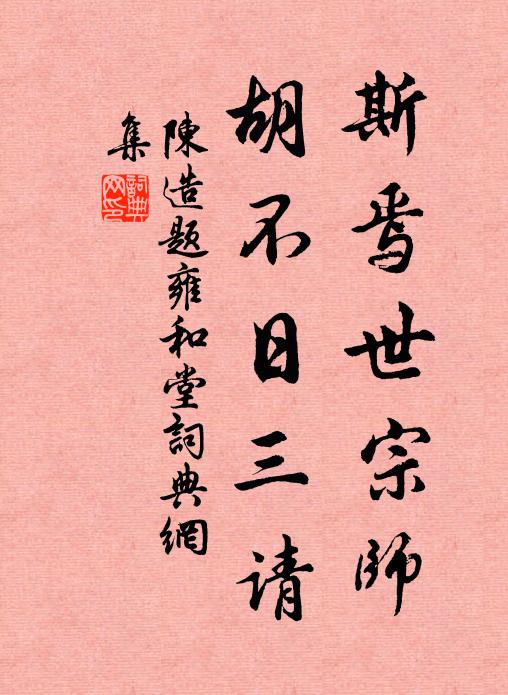 斯焉世宗師
胡不日三请
陳造題雍和堂詞典網
集
詞典网印